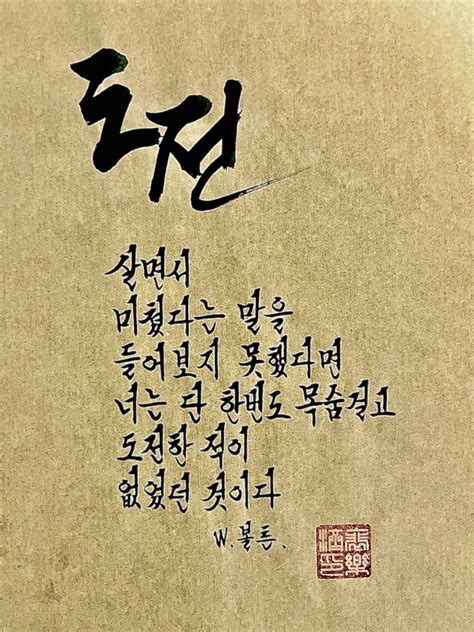 도전
살면서
미쳤다는 말을
들어보지 못했다면
너는 단 한번도 목숨걸고
도전한 적이
없었던 것이다
W.볼튼.